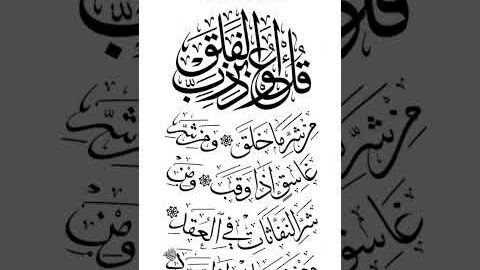 قُلْ أَعُوذُ بِرَبِّ الْفَلَقِ
مِنْ شَرِّ مَا خَلَقَ ۞ وَمِنْ شَرِّ
غَاسِقٍ إِذَا وَقَبَ ۞ وَمِنْ
شَرِّ النَّفَّاثَاتِ فِي الْعُقَدِ ۞